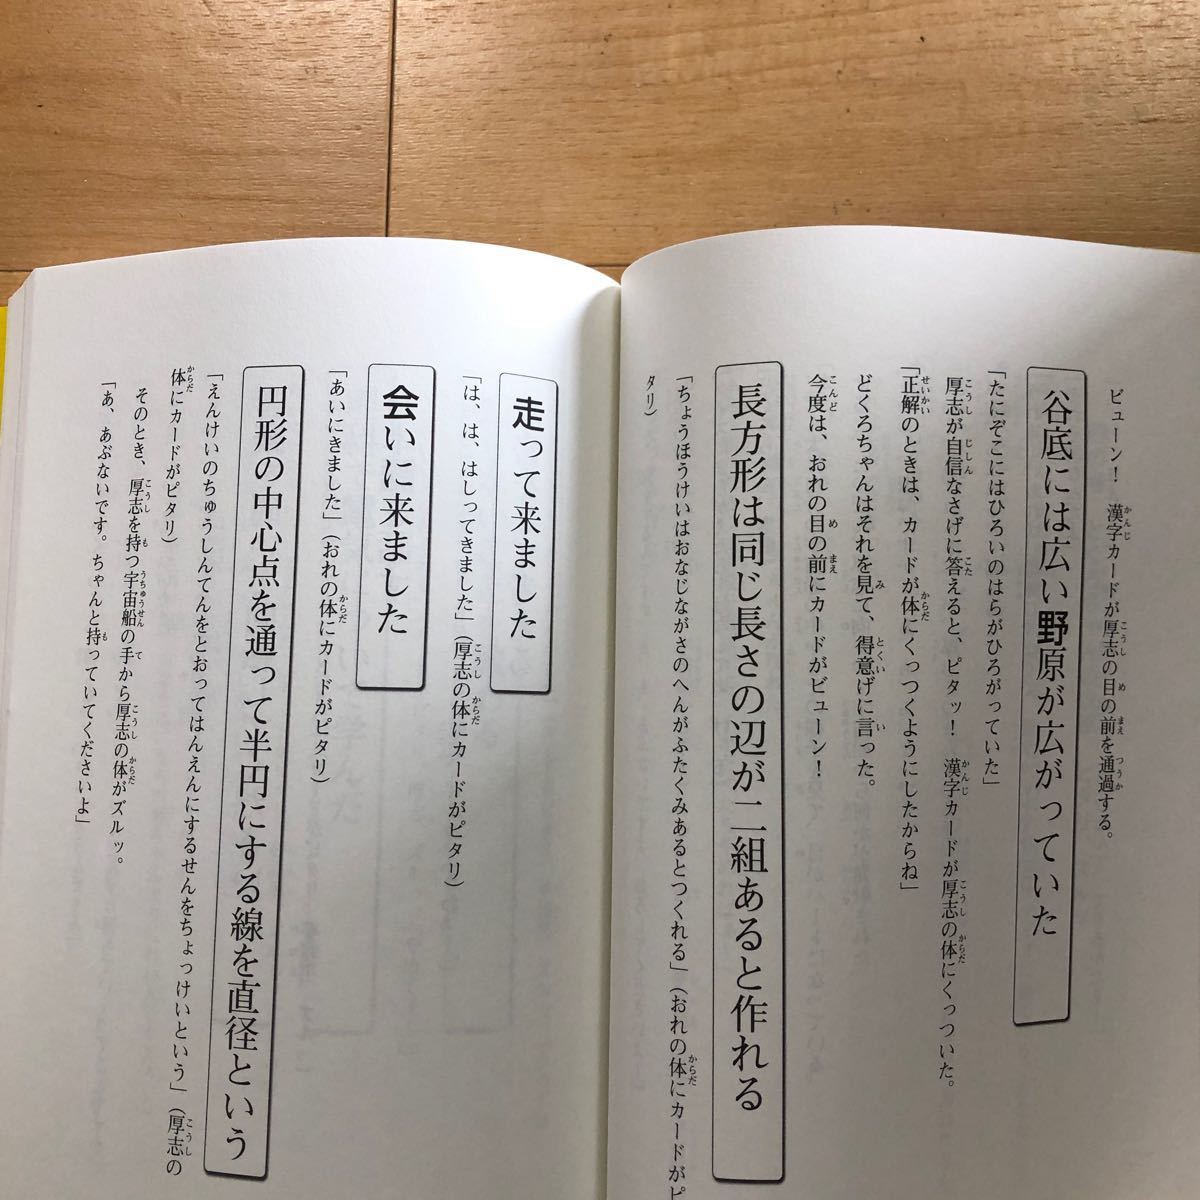 ビューン！　漢字カードが厚志の目の前を通過する。
谷底には広い野原が広がっていた
「たにぞこにはひろいのはらがひろがっていた」
厚志が自信なさげに答えると、ピタッ！　漢字カードが厚志の体にくっついた。
「正解のときは、カードが体にくっつくようにしたからね」
どくろちゃんはそれを見て、得意げに言った。
今度は、おれの目の前にカードがビューン！
長方形は同じ長さの辺が二組あると作れる
「ちょうほうけいはおなじながさのへんがふたくみあるとつくれる」（おれの体にカードがピ
タリ）
走って来ました
「は、は、はしってきました」（厚志の体にカードがピタリ）
会いに来ました
「あいにきました」（おれの体にカードがピタリ）
円形の中心点を通って半円にする線を直径という
「えんけいのちゅうしんてんをとおってはんえんにするせんをちょっけいという」（厚志の
体にカードがピタリ）
そのとき、厚志を持つ宇宙船の手から厚志の体がズルッ。
「あ、あぶないです。ちゃんと持っていてくださいよ」